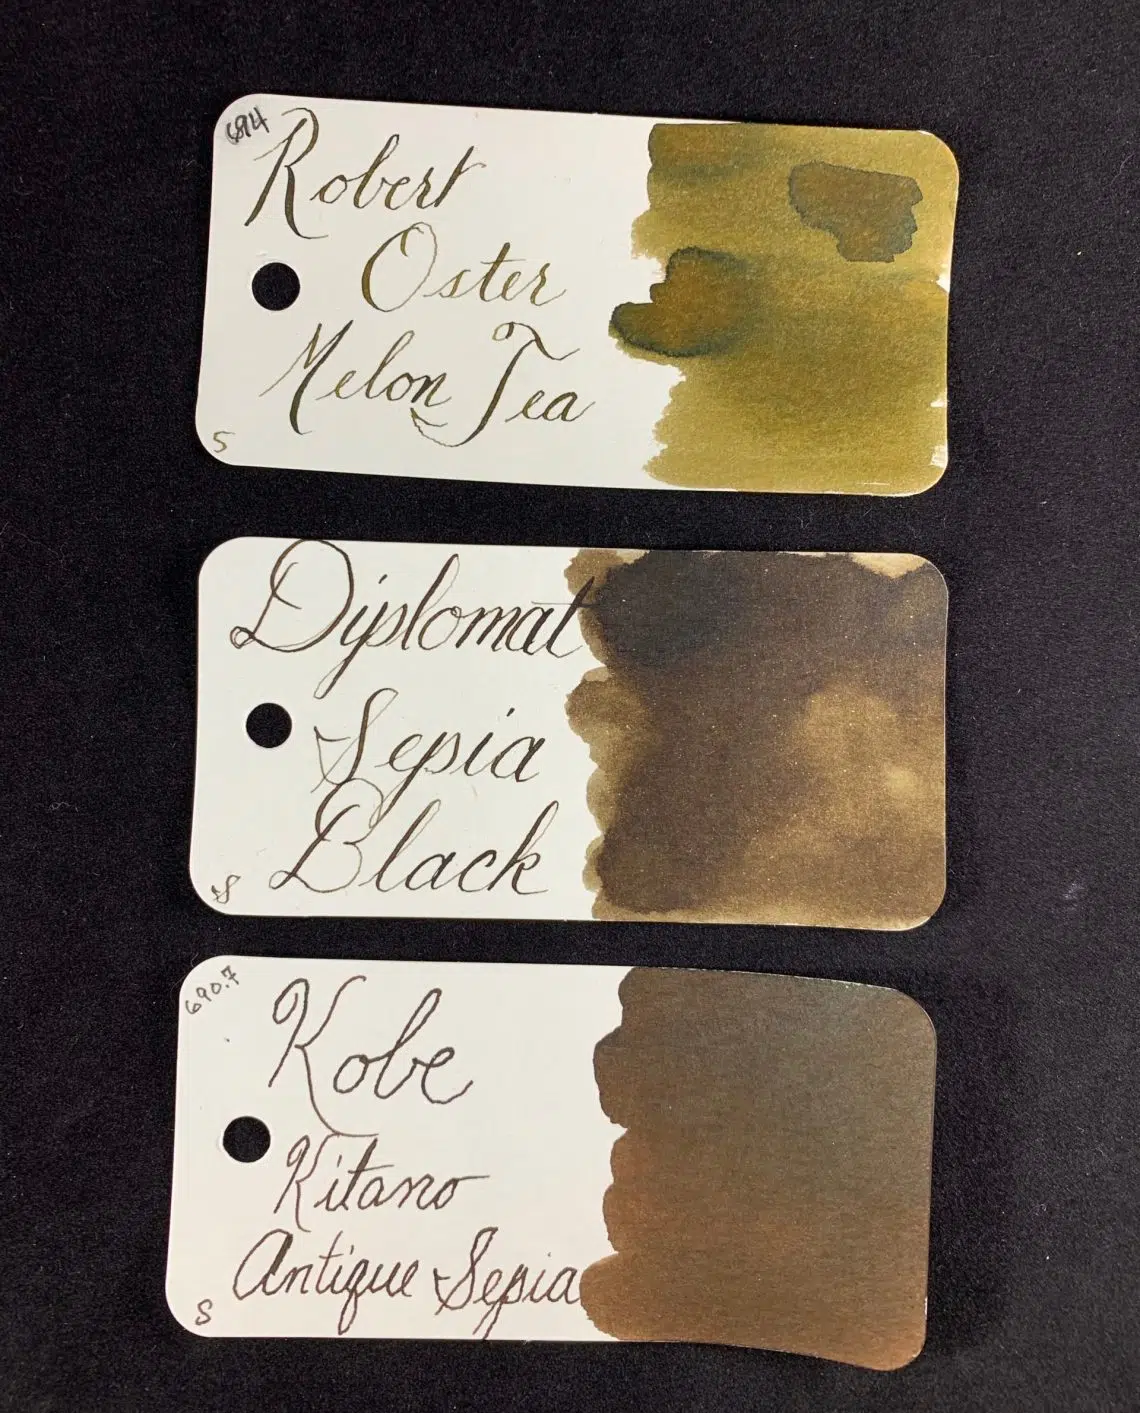 694
Robert
Oster
Melon Tea
S
Diplomat
Sepia
Black
S
690.7
Kobe
Kitano
Antique Sepia
S